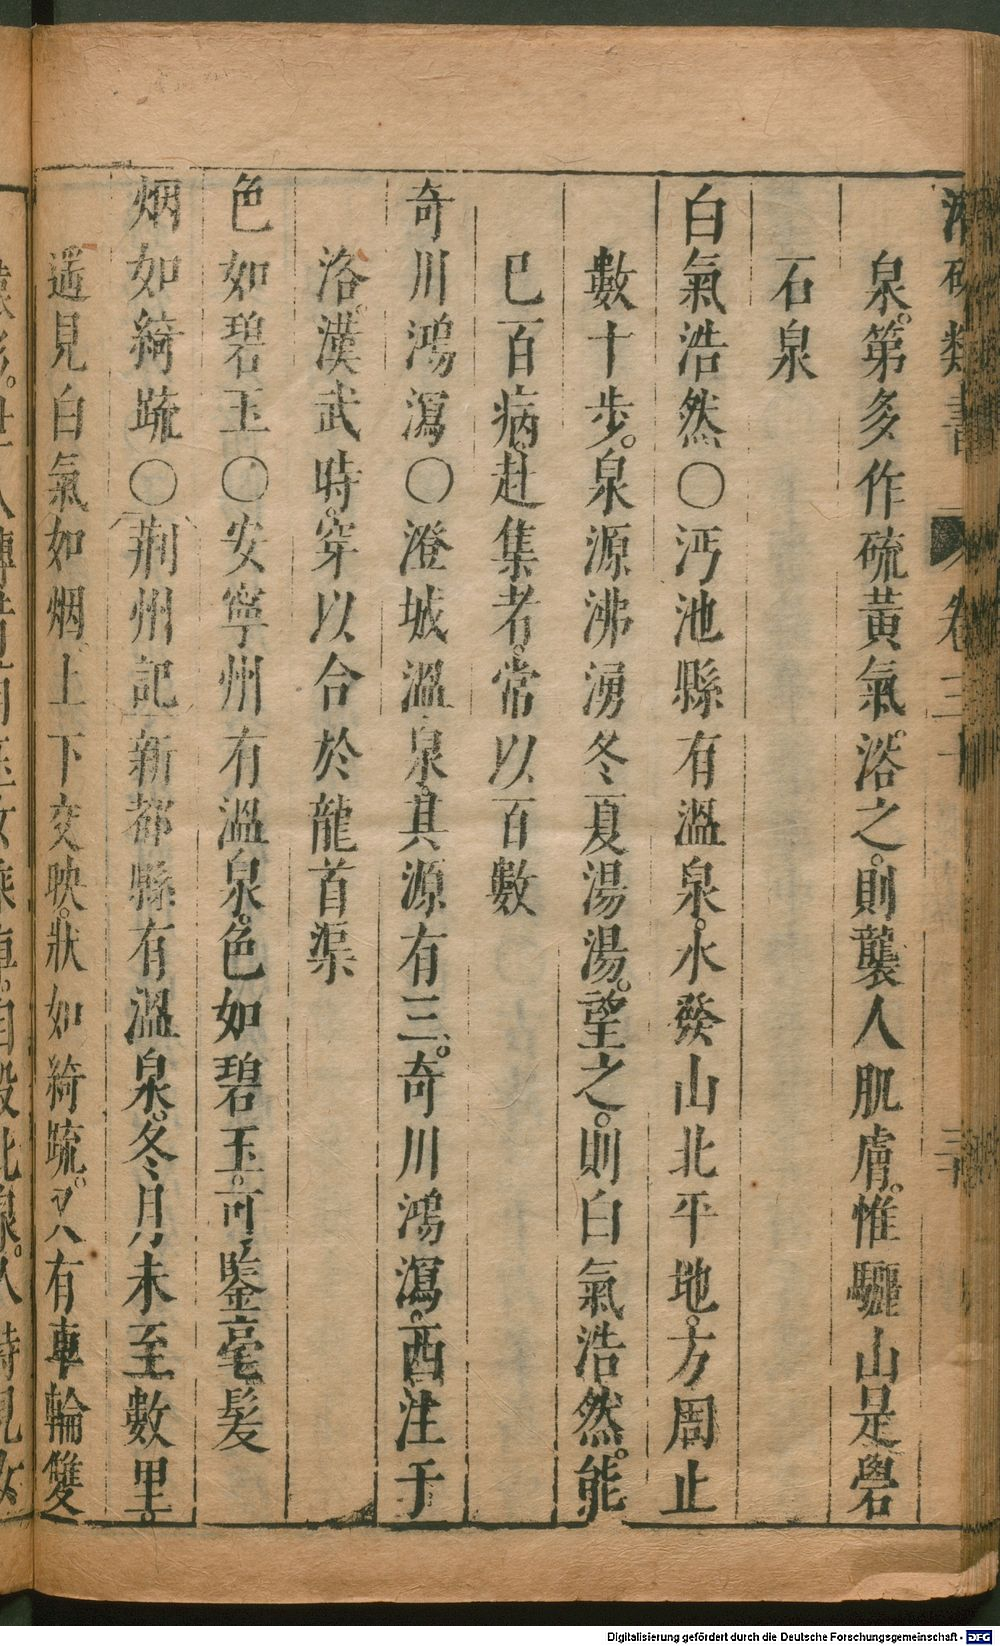 類書 卷三十 三十
泉。第多作硫黃氣。浴之。則襲人肌膚。惟驪山是礜
石泉
白氣浩然〇沔池縣有溫泉。水發山北平地。方周止
數十步。泉源沸湧冬夏湯湯。望之。則白氣浩然。能
已百病。赴集者。常以百數
奇川鴻瀉〇澄城溫泉。其源有三。奇川鴻瀉。西注于
洛。漢武時。穿以合於龍首渠
色如碧玉〇安寧州有溫泉。色如碧玉。可鑒毫髮
烟如綺疏〇荆州記新都縣有溫泉。冬月未至數里。
遥見白氣如烟。上下交映。狀如綺疏。又有車輪雙
Digitalisierung gefördert durch die Deutsche Forschungsgemeinschaft - DFG